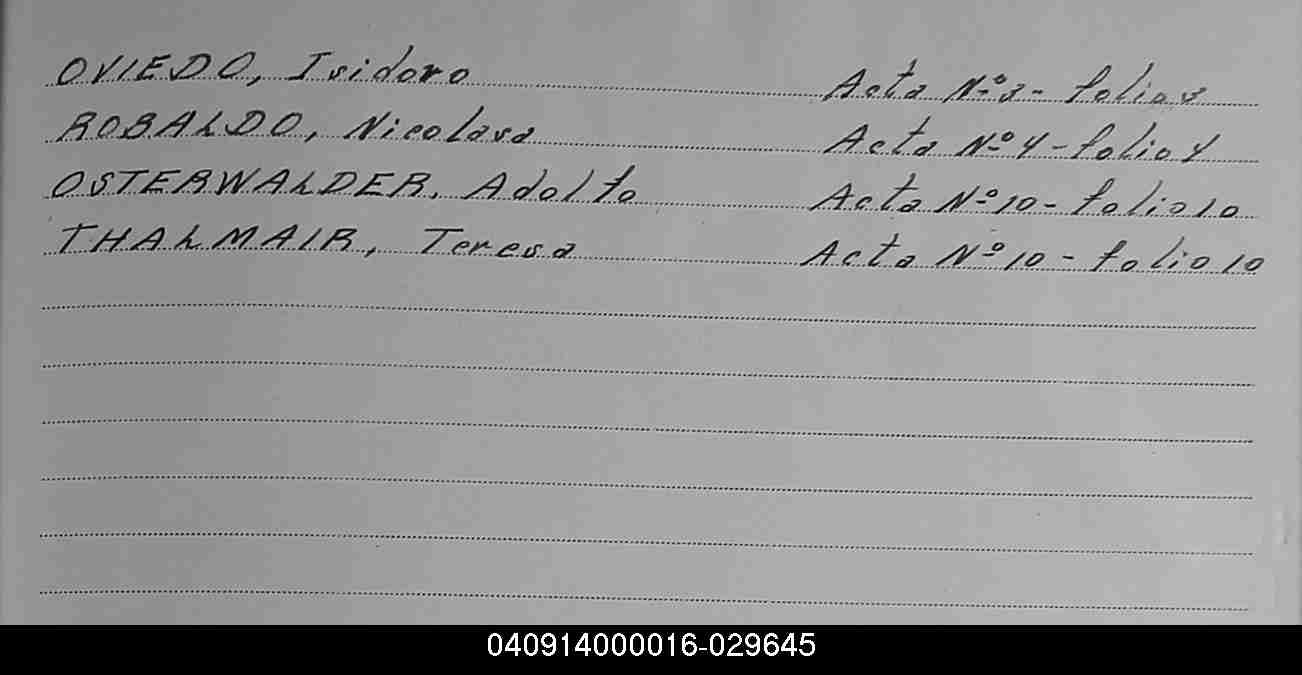 OVIEDO, Isidoro Acta Nº 3 - folio 3
ROBALDO, Nicolasa Acta Nº 4 - folio 4
OSTERWALDER, Adolfo Acta Nº 10 - folio 10
THALMAIR, Teresa Acta Nº 10 - folio 10
040914000016-029645